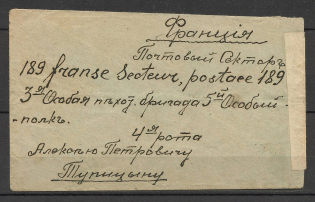 Франція
Почтовый Секторъ
189 franse Secteur, postace 189
3ья Особая пѣхот. бригада 5й Особый
-полкъ.
4я рота
Алексѣю Петровичу
Тупицыну